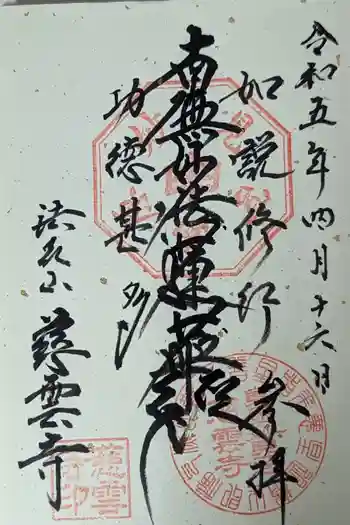 令和五年四月十六日
参拝
如説修行
南無妙法蓮華経
功徳甚多
慈雲寺
慈雲
寺印